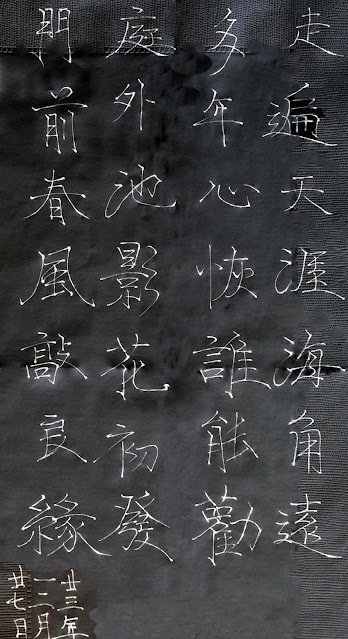 走遍天涯海角遠
多年心恢誰能勸
庭外池影花初發
門前春風敲良緣
廿三年
一二月
廿七日